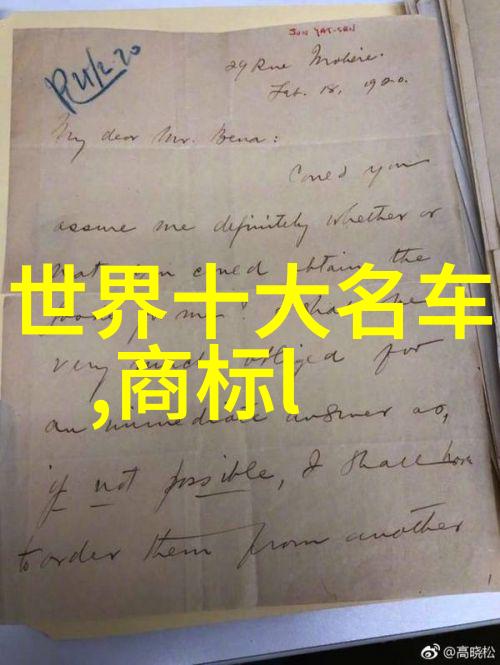 SUN YAT-SEN
R 21/2.20
29 Rue Molière.
Feb. 18, 1920.
My dear Mr. Bena:
Could you
assure me definitely whether or
not you could obtain the
books for me? I shall be
very much obliged for
an immediate answer as,
if not possible, I shall have
to order them from another
世界十大名车
,商标l
@高晓松